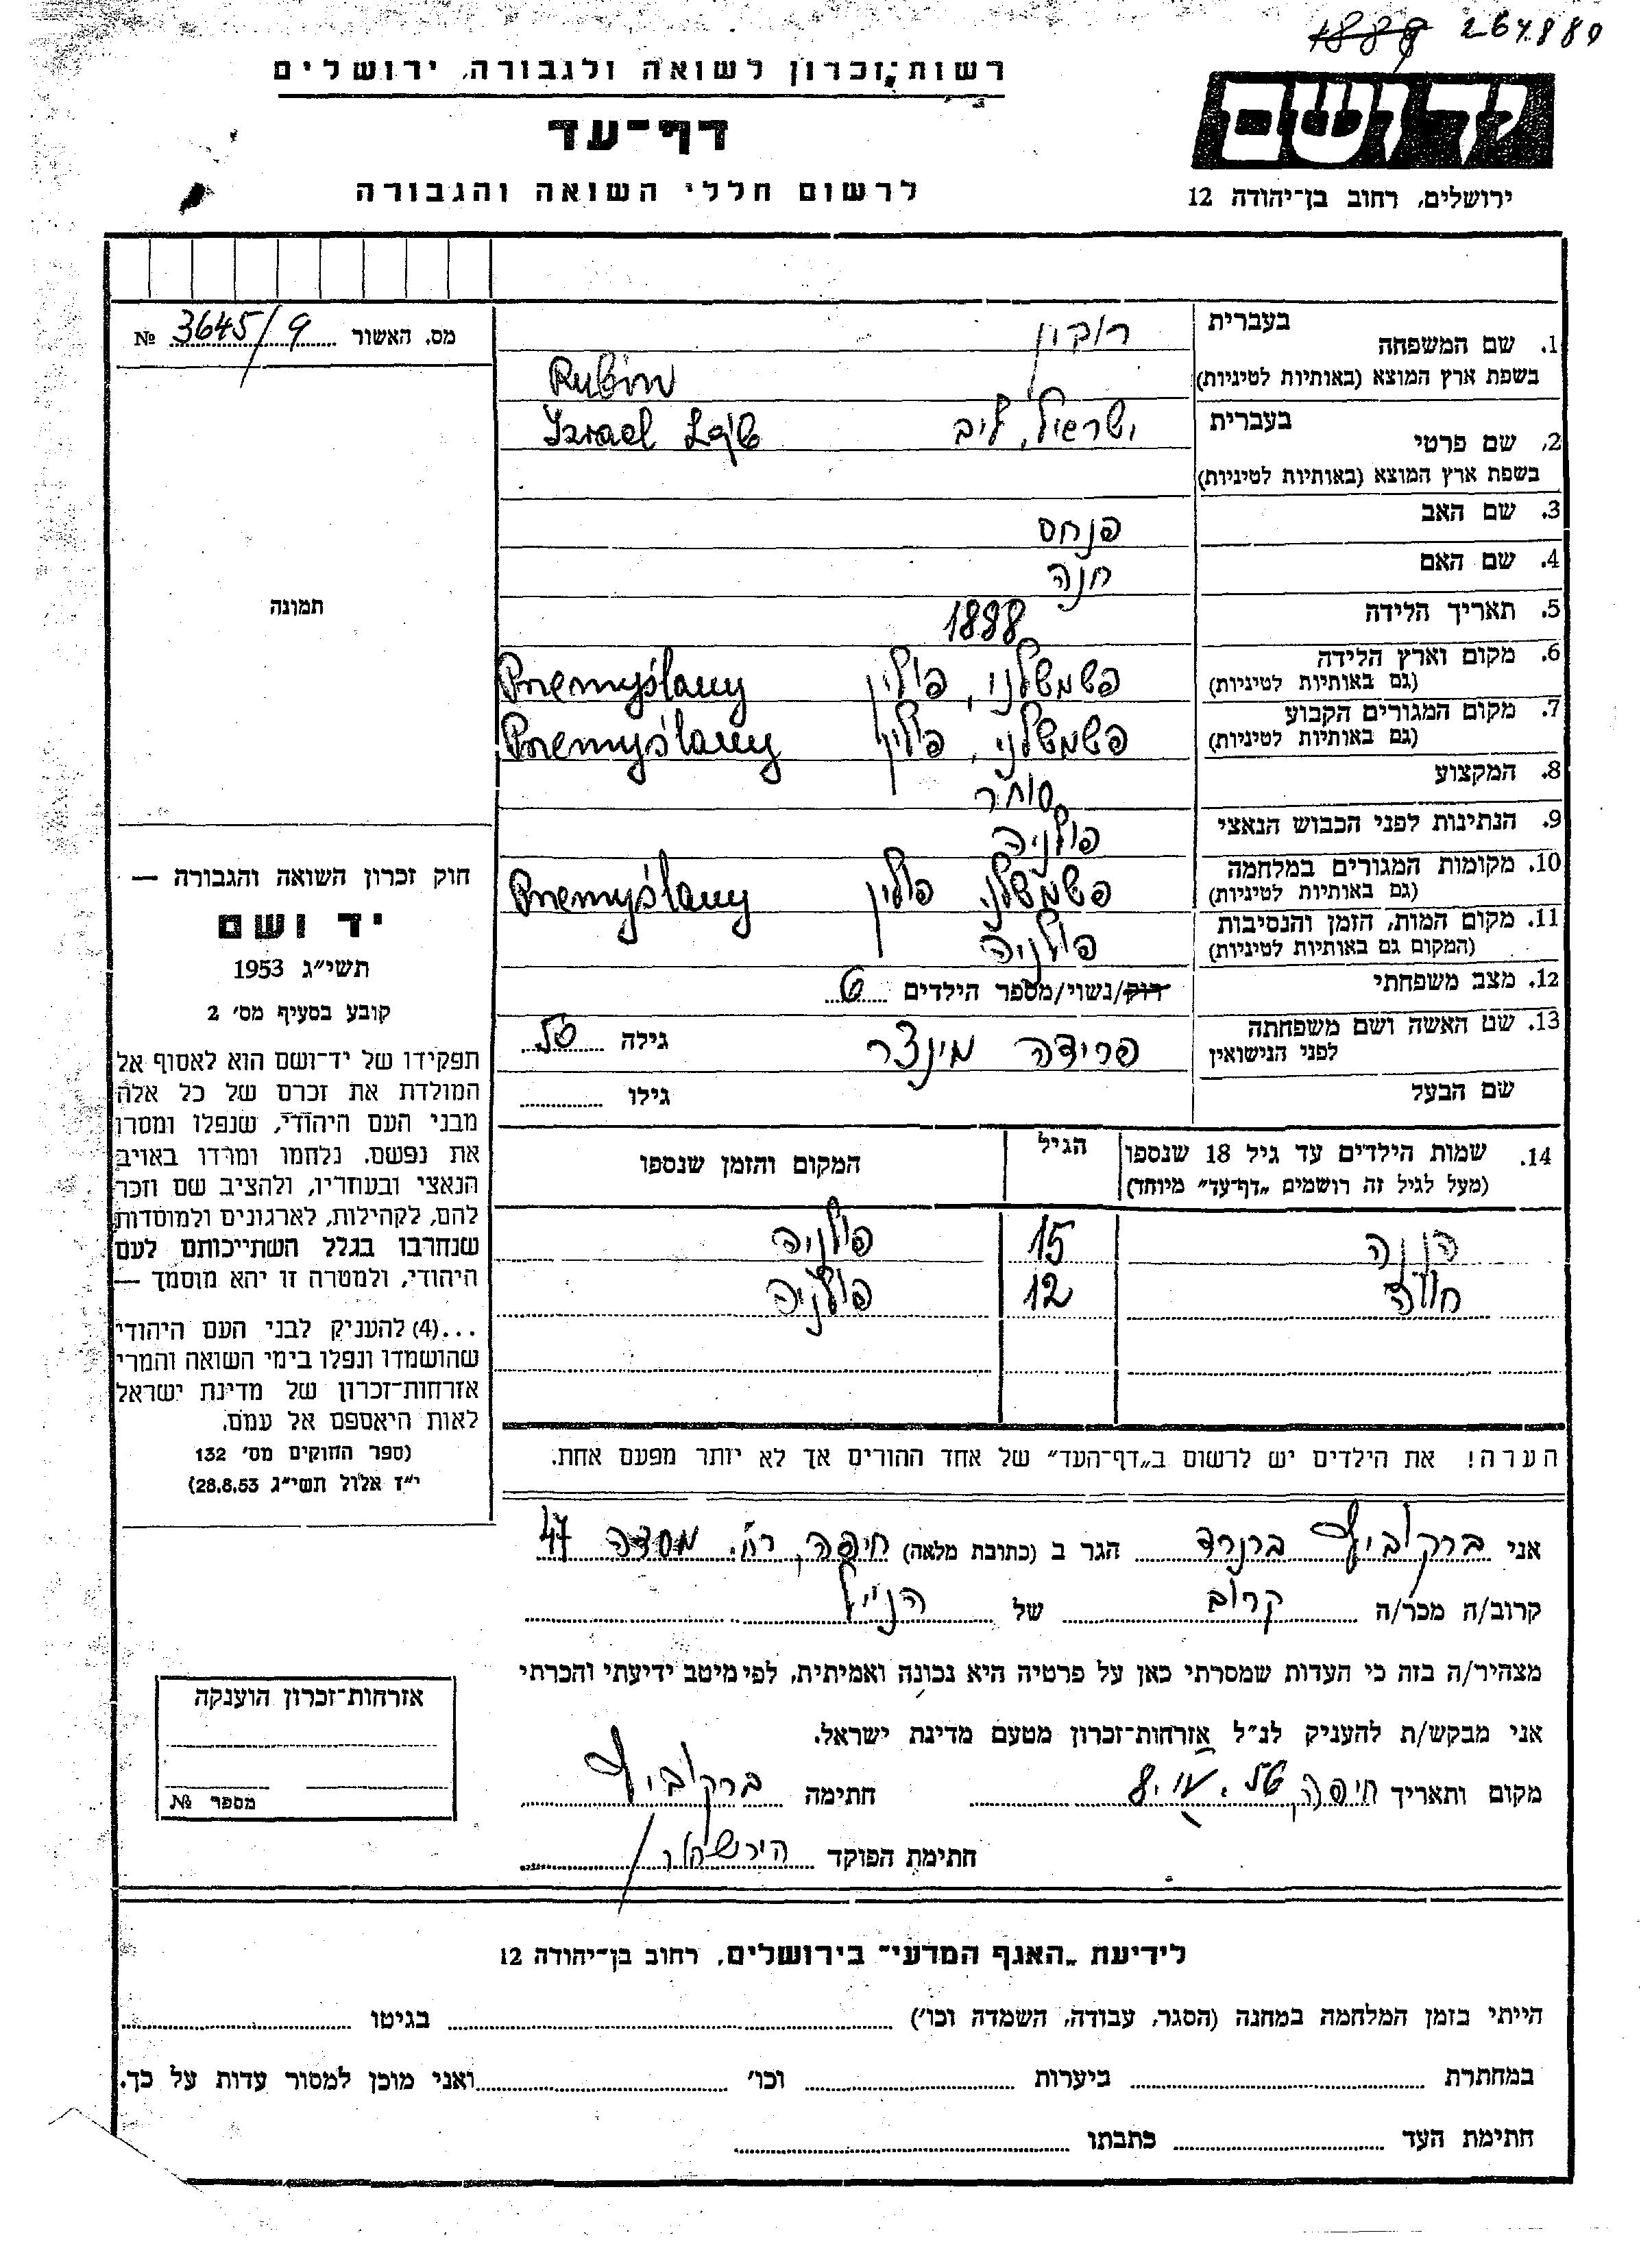 1889 264880
רשות־זכרון לשואה ולגבורה, ירושלים
דף־עד
לרשום חללי השואה והגבורה
יד ושם
ירושלים, רחוב בן־יהודה 12
מס. האשור 3645/9 №
תמונה
חוק זכרון השואה והגבורה —
יד ושם
תשי״ג 1953
קובע בסעיף מס׳ 2
תפקידו של יד־ושם הוא לאסוף אל
המולדת את זכרם של כל אלה
מבני העם היהודי, שנפלו ומסרו
את נפשם, נלחמו ומרדו באויב
הנאצי ובעוזריו, ולהציב שם וזכר
להם, לקהילות, לארגונים ולמוסדות
שנחרבו בגלל השתייכותם לעם
היהודי, ולמטרה זו יהא מוסמך —
...(4) להעניק לבני העם היהודי
שהושמדו ונפלו בימי השואה והמרי
אזרחות־זכרון של מדינת ישראל
לאות היאספם אל עמם.
(ספר החוקים מס׳ 132
י״ז אלול תשי״ג 28.8.53)
1. שם המשפחה בעברית רובין
בשפת ארץ המוצא (באותיות לטיניות) Rubin
2. שם פרטי בעברית ישראל, ליב Izrael
בשפת ארץ המוצא (באותיות לטיניות)
3. שם האב פנחס
4. שם האם חנה
5. תאריך הלידה 1888
6. מקום וארץ הלידה פשמשלני, פולין Premyślany
(גם באותיות לטיניות)
7. מקום המגורים הקבוע פשמשלני, פולין Premyślany
(גם באותיות לטיניות)
8. המקצוע סוחר
9. הנתינות לפני הכבוש הנאצי פולניה
10. מקומות המגורים במלחמה פשמשלני פולין Premyślany
(גם באותיות לטיניות)
11. מקום המות, הזמן והנסיבות פולניה
(המקום גם באותיות לטיניות)
12. מצב משפחתי רוק/נשוי/מספר הילדים 6
13. שם האשה ושם משפחתה פרידה מינצר גילה
לפני הנישואין
שם הבעל גילו
14. שמות הילדים עד גיל 18 שנספו הגיל המקום והזמן שנספו
(מעל לגיל זה רושמים „דף־עד״ מיוחד)
15 פולניה
12 פולניה
הערה! את הילדים יש לרשום ב„דף־העד״ של אחד ההורים אך לא יותר מפעם אחת.
אני ברקוביץ ברנרד הגר ב (כתובת מלאה) חיפה, רח׳ מסדה 47
קרוב/ה מכר/ה קרוב של הנ״ל
מצהיר/ה בזה כי העדות שמסרתי כאן על פרטיה היא נכונה ואמיתית, לפי מיטב ידיעתי והכרתי
אני מבקש/ת להעניק לנ״ל אזרחות־זכרון מטעם מדינת ישראל.
מקום ותאריך חיפה חתימה ברקוביץ
חתימת הפוקד
אזרחות־זכרון הוענקה
מספר №
לידיעת „האגף המדעי״ בירושלים, רחוב בן־יהודה 12
הייתי בזמן המלחמה במחנה (הסגר, עבודה, השמדה וכו׳) בגיטו
במחתרת ביערות וכו׳ ואני מוכן למסור עדות על כך.
חתימת העד כתבתו